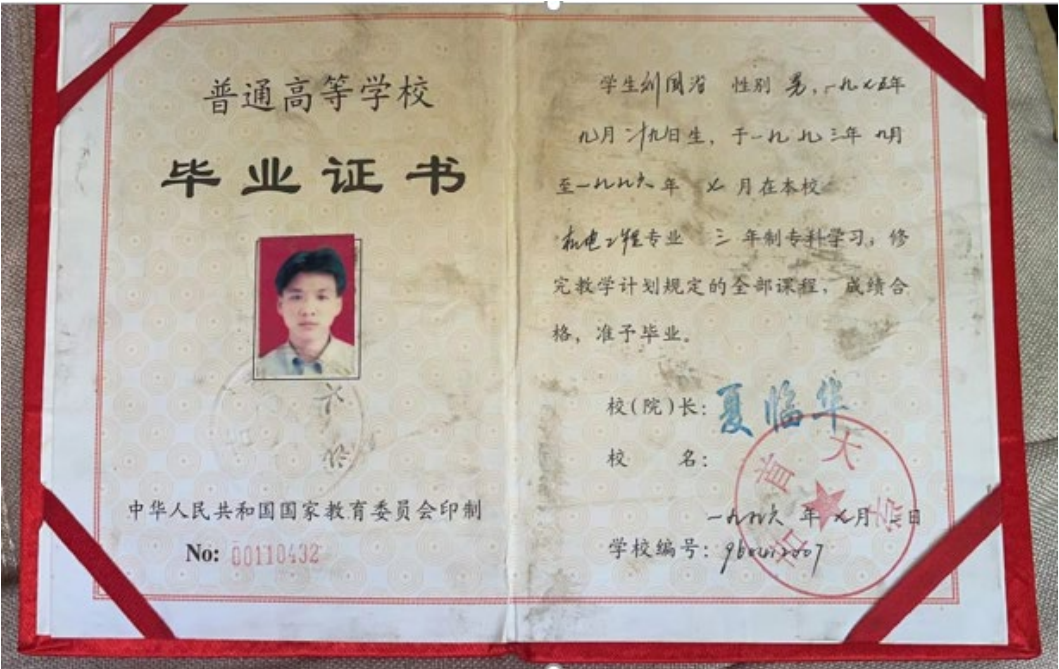 普通高等学校
毕业证书
中华人民共和国国家教育委员会印制
No: 00110432
学生刘国省 性别 男，一九七五年
九月二十九日生，于一九九三年 九月
至一九九六年 七 月在本校
机电工程专业 三 年制专科学习，修
完教学计划规定的全部课程，成绩合
格，准予毕业。
校(院)长：夏临华
校 名：
大学
一九九六 年 七月 日
学校编号：